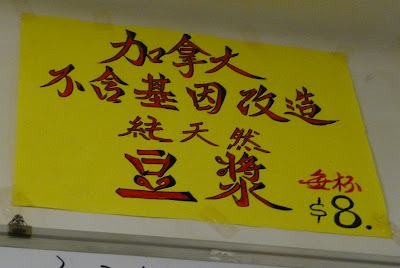 加拿大
不含基因改造
純天然
豆漿
每杯
$8.